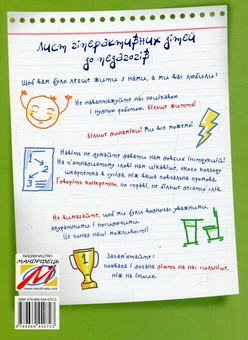 Лист гіперактивних дітей
до педагогів
Щоб вам було легше жити з нами, а ми вас любили:
Не навантажуйте нас нецікавою
і нудною роботою. Більше життя!
Більше динаміки! Ми все можемо!
1
2
3
Навіть не думайте давати нам довгих інструкцій!
На п'ятнадцятому слові нам цікавіше, якого кольору
шкарпетки в сусіда, ніж ваша повчальна промова.
Говоріть конкретно, по справі, не більше десяти слів.
Не вимагайте, щоб ми були водночас уважними,
акуратними і посидючими.
Це понад наші можливості!
1
Запам'ятайте:
похвала і догана діють на нас сильніше,
ніж на інших.
ВИДАВНИЦТВО
МАНДРІВЕЦЬ
www.mandrivets.com